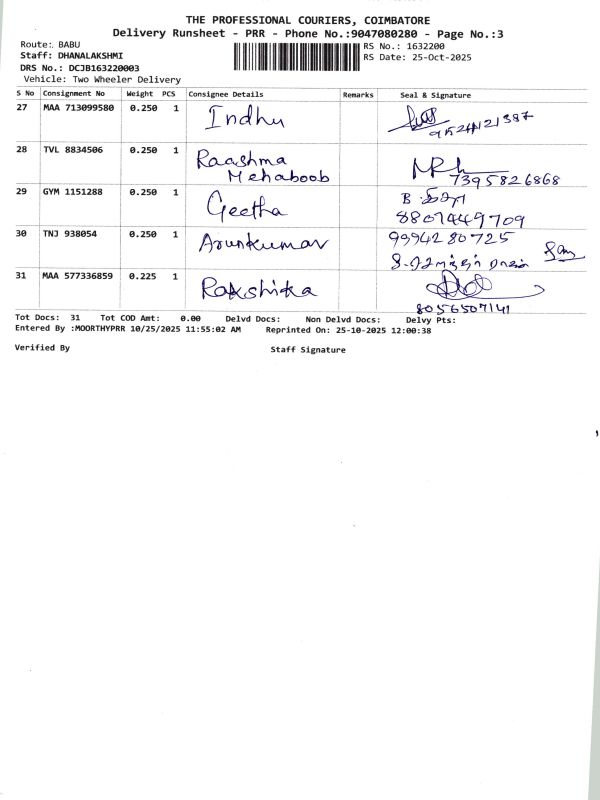 THE PROFESSIONAL COURIERS, COIMBATORE
Delivery Runsheet - PRR - Phone No.:9047080280 - Page No.:3
Route: BABU
Staff: DHANALAKSHMI
DRS No.: DCJB163220003
Vehicle: Two Wheeler Delivery
RS No.: 1632200
RS Date: 25-Oct-2025
S No Consignment No Weight PCS Consignee Details Remarks Seal & Signature
27 MAA 713099580 0.250 1 Indhu
28 TVL 8834506 0.250 1 Raashma
Mehaboob 7395826868
29 GYM 1151288 0.250 1 Geetha
8807449709
30 TNJ 938054 0.250 1 Arunkumar 9994280725
31 MAA 577336859 0.225 1 Rakshika
8056507141
Tot Docs: 31 Tot COD Amt: 0.00 Delvd Docs: Non Delvd Docs: Delvy Pts:
Entered By :MOORTHYPRR 10/25/2025 11:55:02 AM Reprinted On: 25-10-2025 12:00:38
Verified By Staff Signature